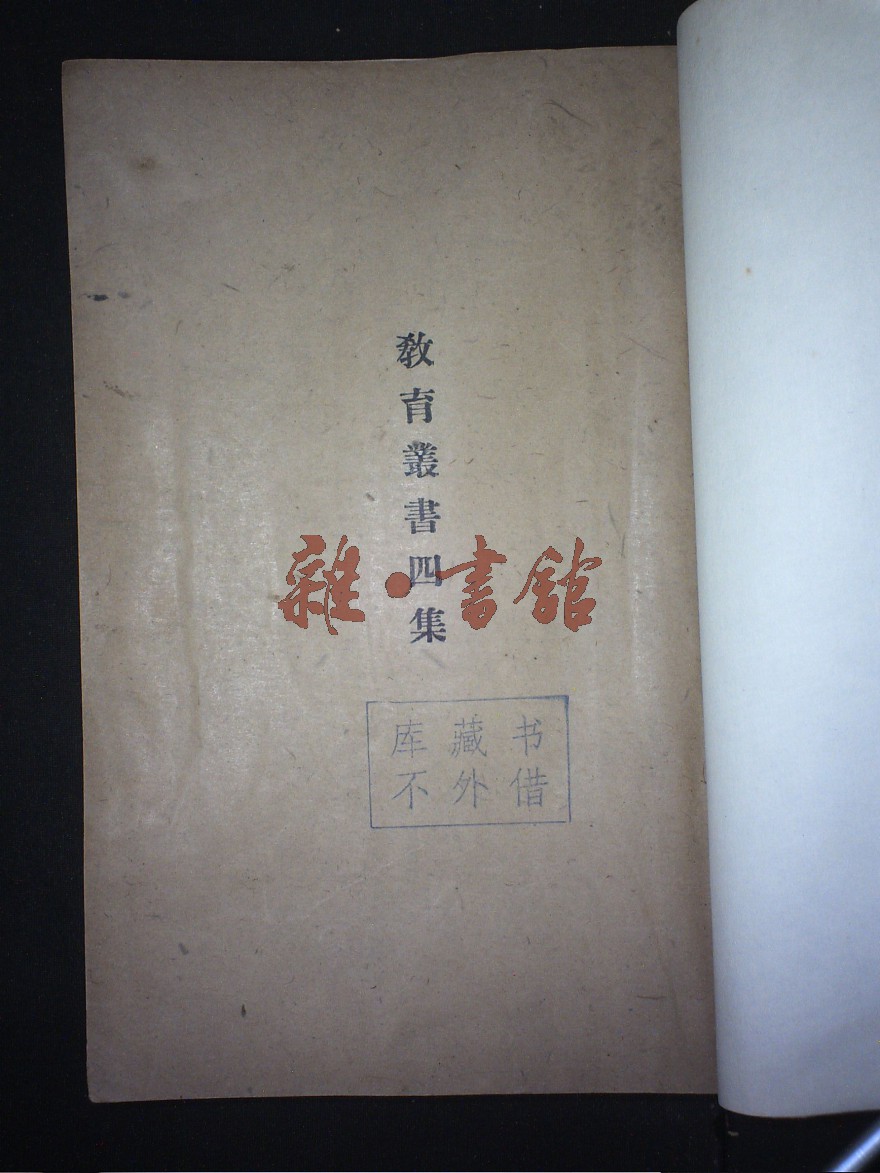 教育叢書四集
雜·書館
库藏书
不外借